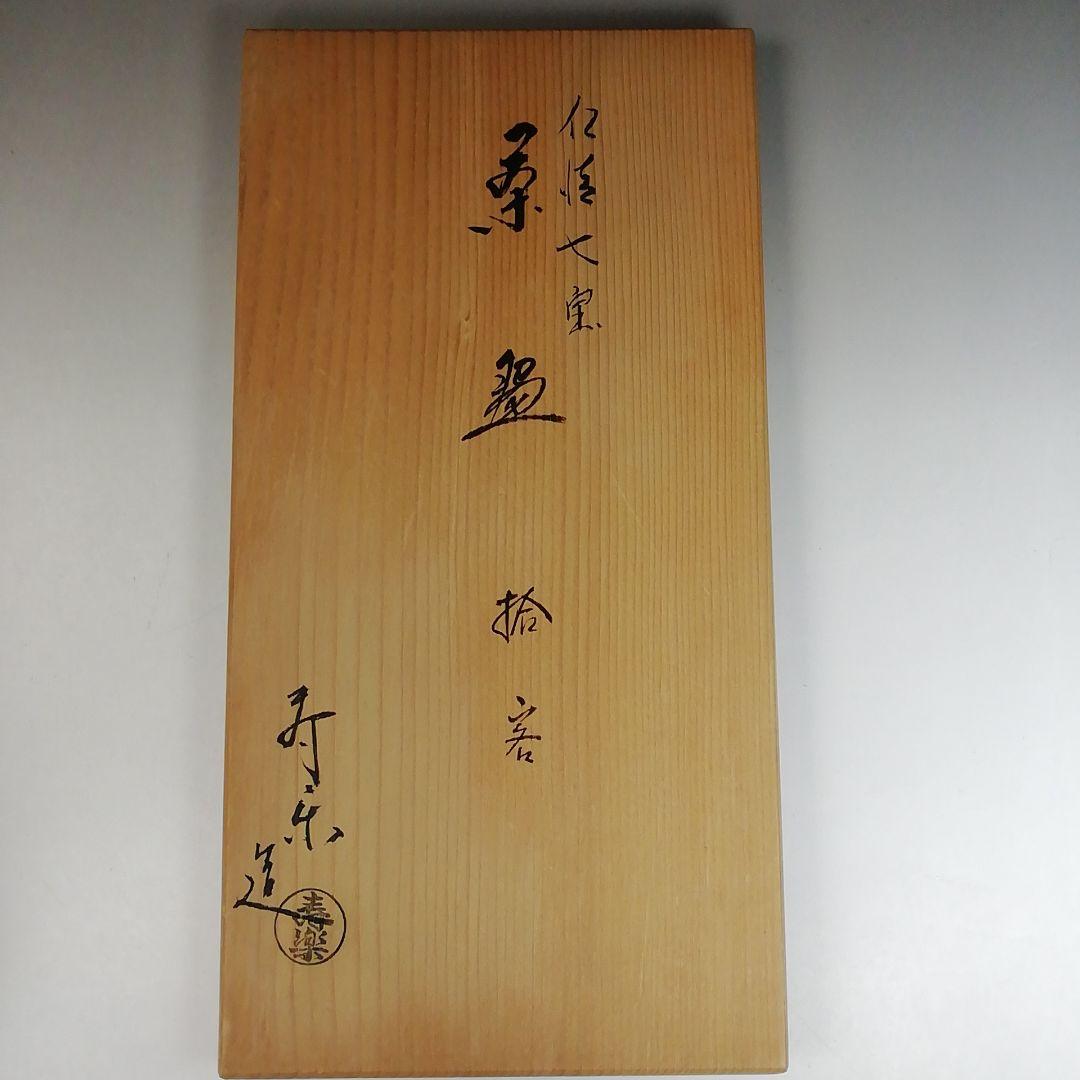 仁清七窯
菓盌
拾客
寿楽造
寿楽